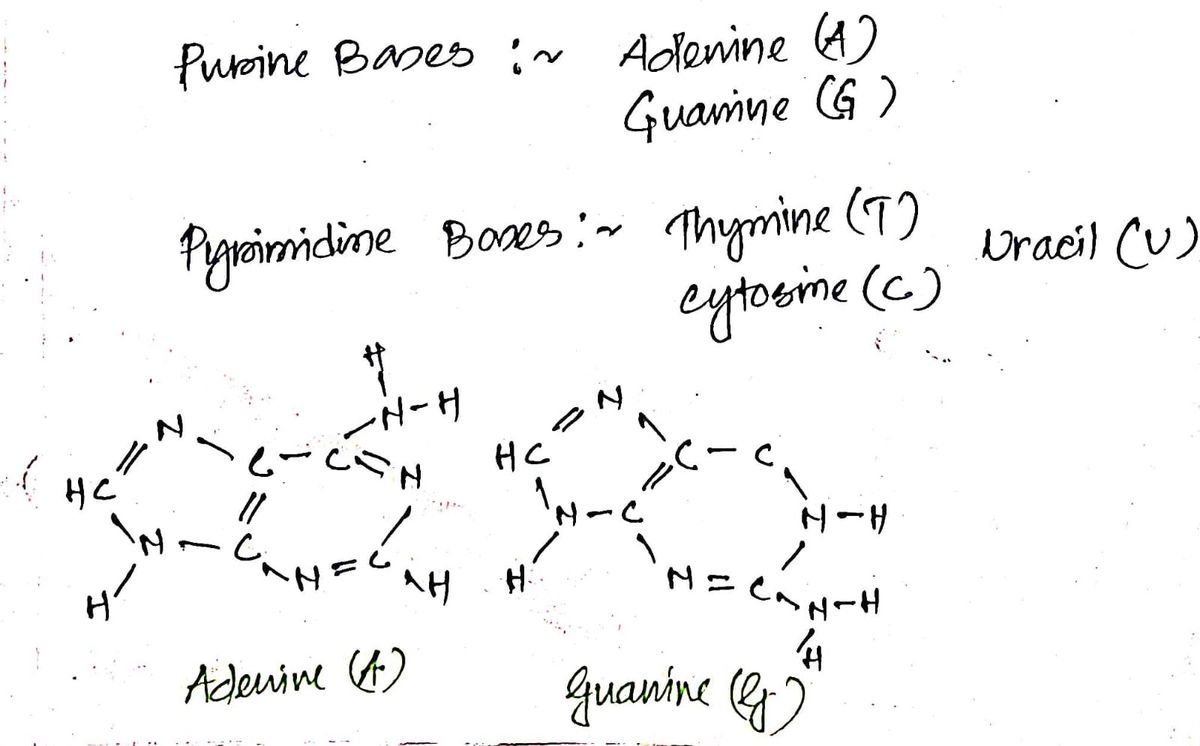 Purine Bases :~ Adenine (A)
Guanine (G)
Pyrimidine Bases :~ Thymine (T) Uracil (U)
cytosine (C)
H
N-H N
N C-C=N HC C-C
HC N-C N-H
N-C
H N=C H H N=C N-H
H
Adenine (A) Guanine (G)